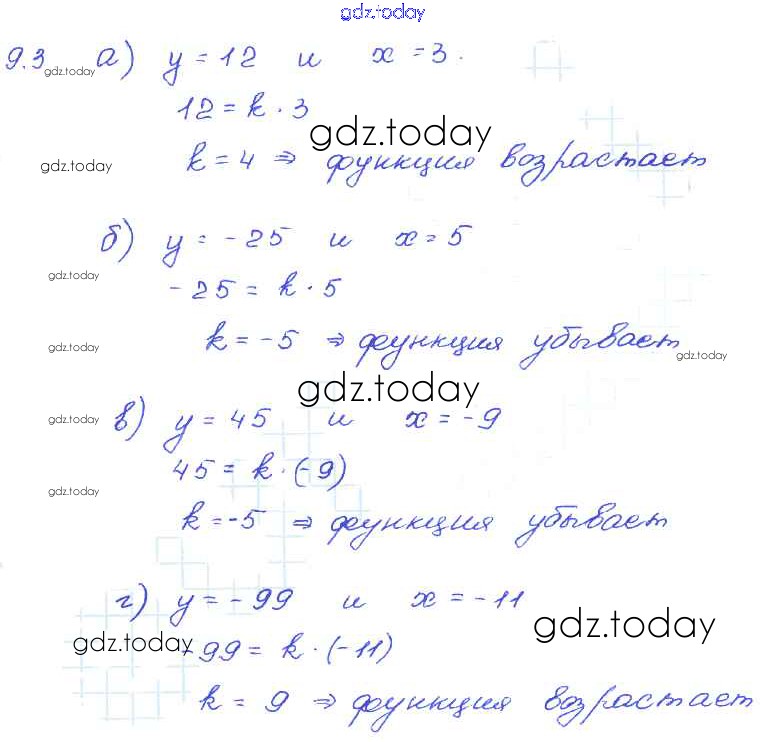 gdz.today
9.3 gdz.today а) y = 12 и x = 3.
12 = k · 3
gdz.today
gdz.today k = 4 ⇒ функция возрастает
б) y = -25 и x = 5
gdz.today
-25 = k · 5
gdz.today k = -5 ⇒ функция убывает gdz.today
gdz.today
gdz.today в) y = 45 и x = -9
45 = k · (-9)
gdz.today
k = -5 ⇒ функция убывает
г) y = -99 и x = -11
gdz.today
gdz.today -99 = k · (-11)
k = 9 ⇒ функция возрастает